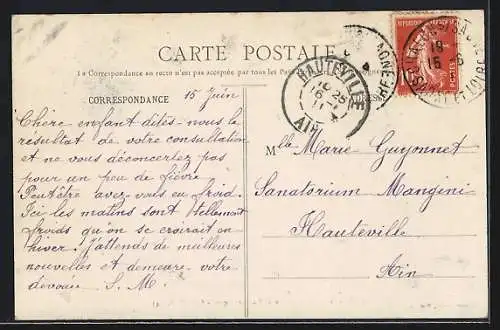 CARTE POSTALE
La Correspondance au recto n'est pas acceptée par tous les Pays
CORRESPONDANCE
15 Juin
Chère enfant dites-nous le
résultat de votre consultation
et ne vous déconcertez pas
pour un peu de fièvre
Peut être avez-vous eu froid.
Ici les matins sont tellement
froids qu'on se croirait en
hiver J'attends de meilleures
nouvelles et demeure votre
dévouée S. M.
HAUTEVILLE
AIN
Mlle Marie Guyonnet
Sanatorium Mangini
Hauteville
Ain